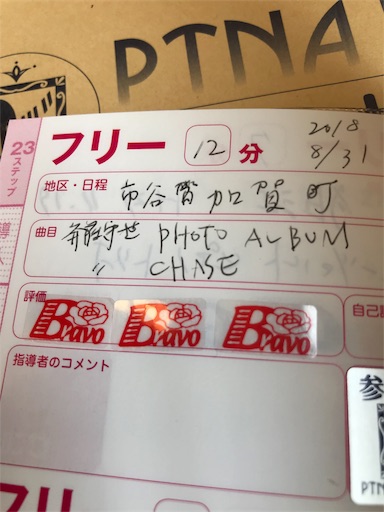 PTNA
23
ステップ
フリー 12 分
2018
8/31
地区・日程 市谷加賀町
曲目 斉藤守也 PHOTO ALBUM
〃 CHASE
評価
Bravo Bravo Bravo
自己
指導者のコメント
参
PTN
フリー